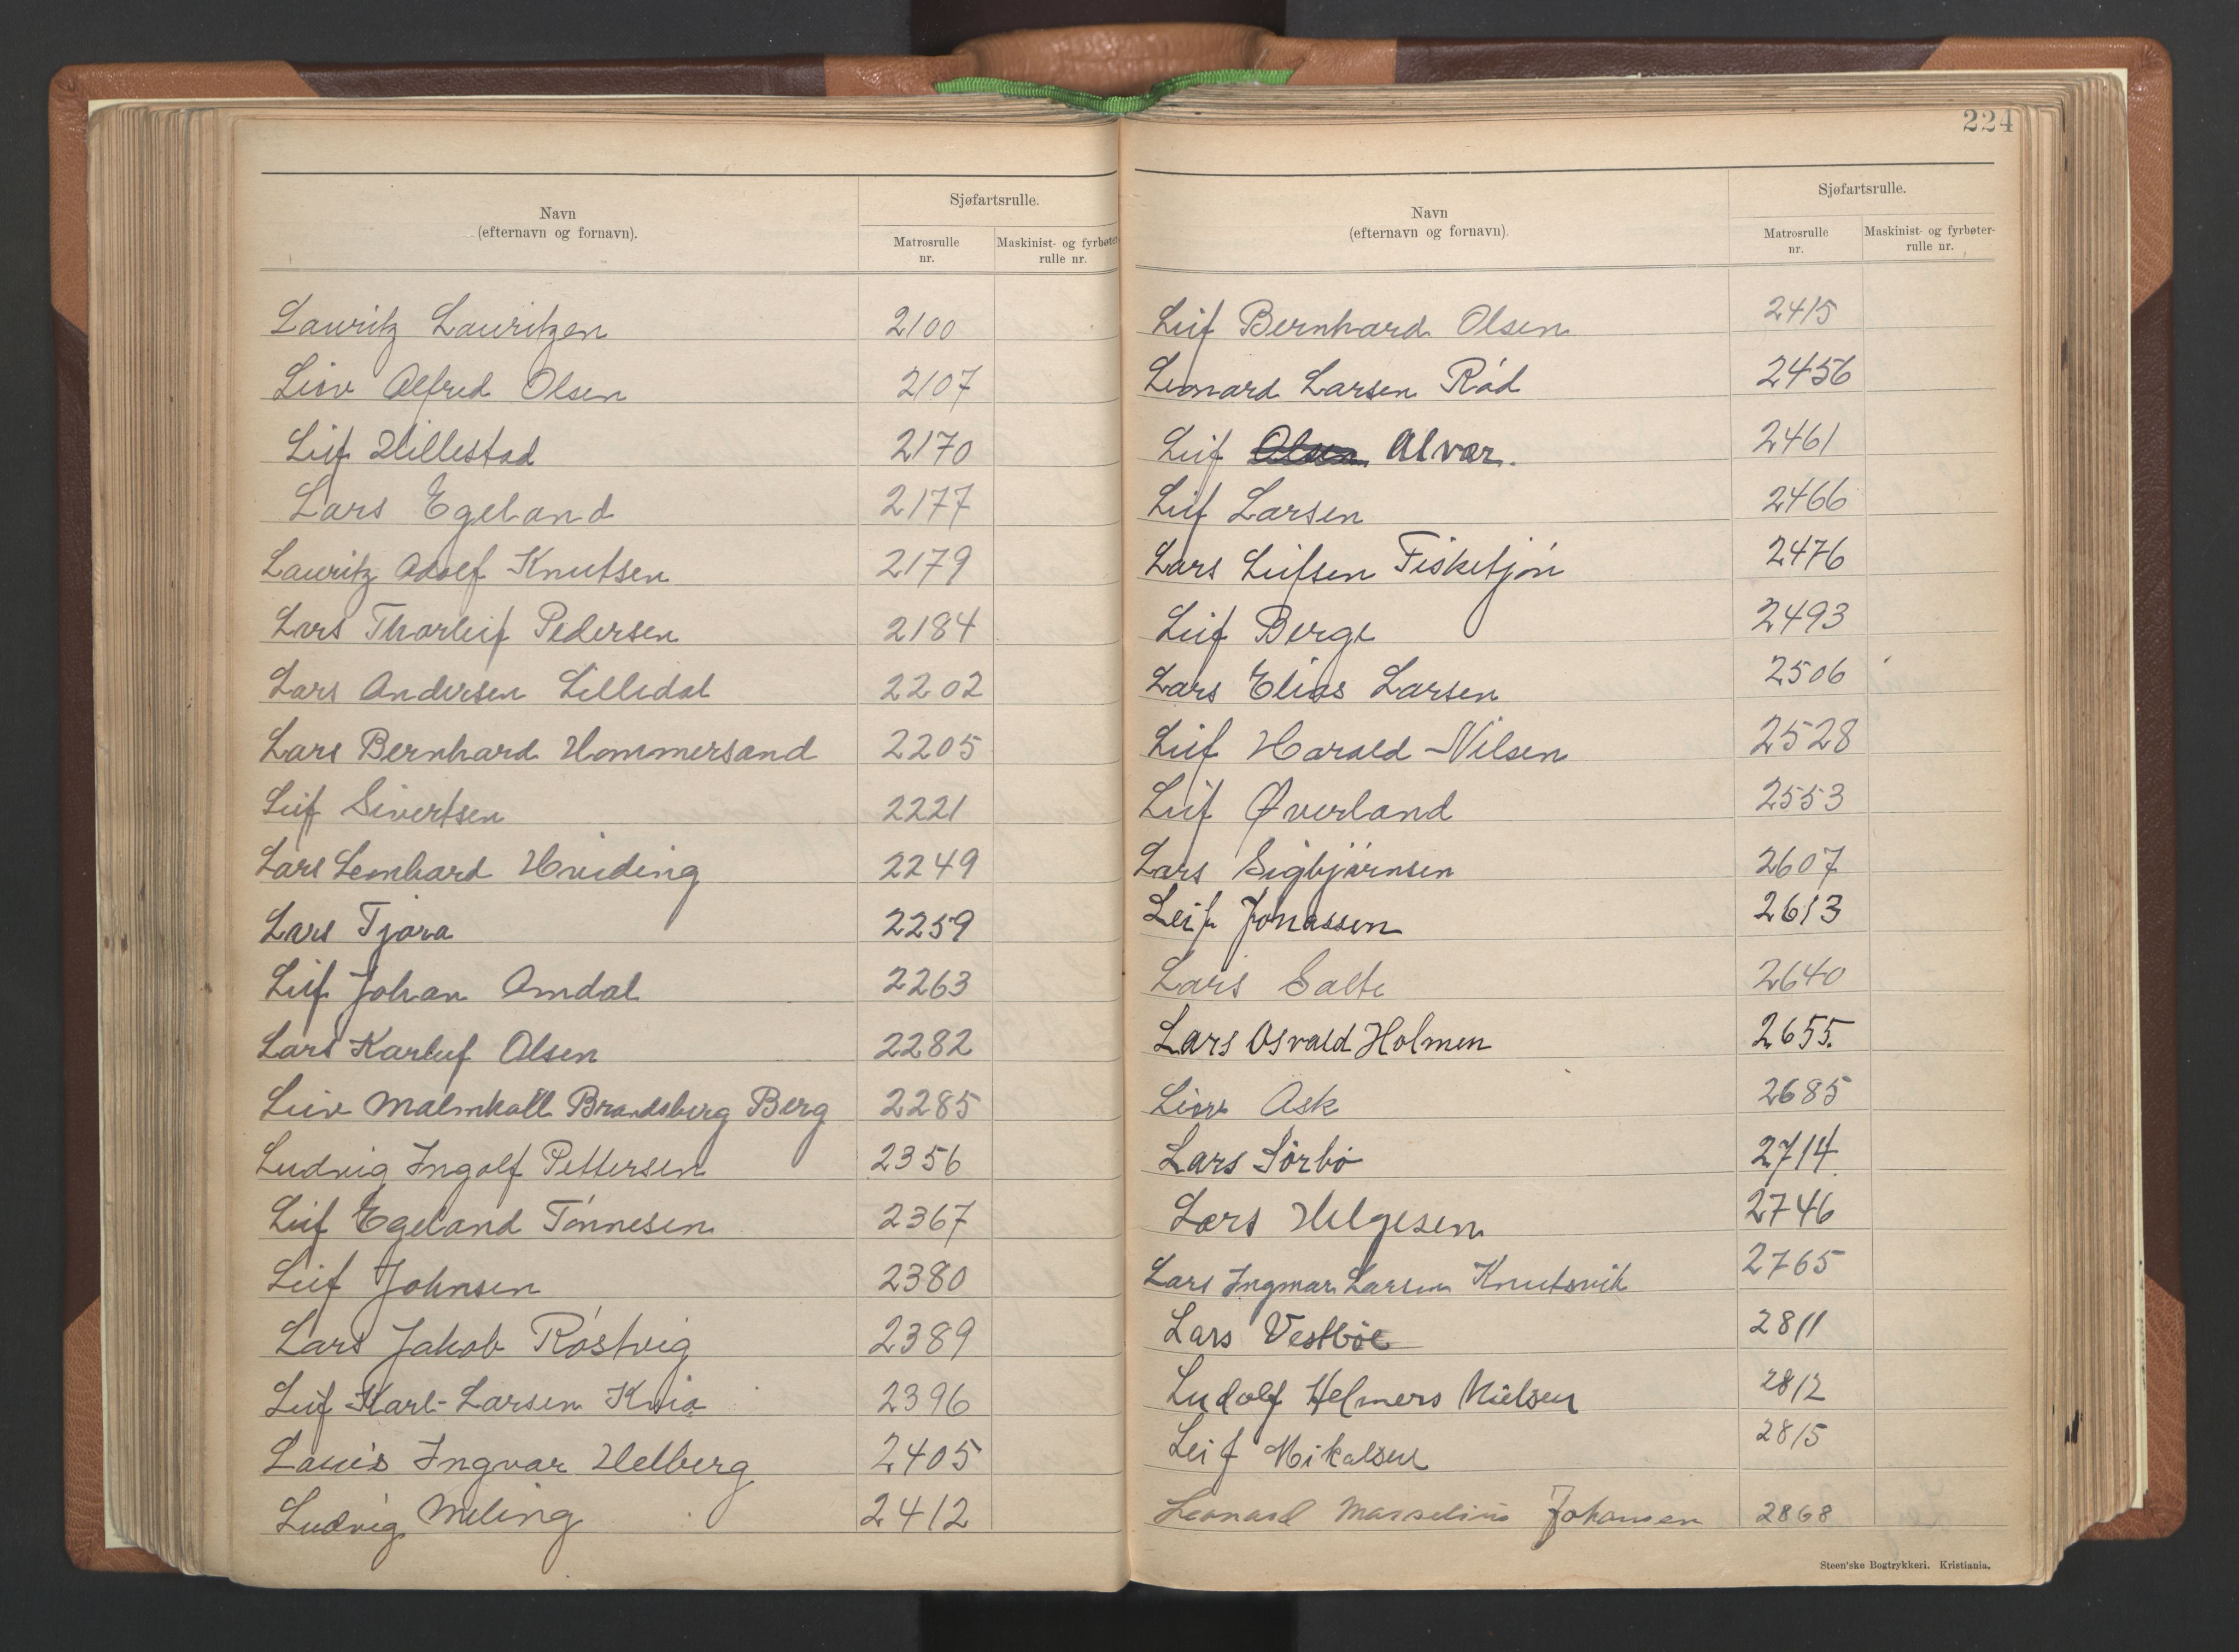 Navn
(efternavn og fornavn).
Sjøfartsrulle.
Matrosrulle nr.
Maskinist- og fyrbøter-rulle nr.
Lauritz Lauritzen 2100
Leiv Alfred Olsen 2107
Leif Hillestad 2170
Lars Egeland 2177
Lauritz Adolf Knutsen 2179
Lars Thorleif Pedersen 2184
Lars Andersen Lilledal 2202
Lars Bernhard Hommersand 2205
Leif Sivertsen 2221
Lars Leonhard Hveding 2249
Lars Tjøra 2259
Leif Johan Omdal 2263
Lars Karluf Olsen 2282
Leiv Malmkall Brandsberg Berg 2285
Ludvig Ingolf Pettersen 2356
Leif Egeland Tönnesen 2367
Leif Johnsen 2380
Lars Jakob Röstvig 2389
Leif Karl-Larsen Knia 2396
Lauis Ingvar Helberg 2405
Ludvig Meling 2412
224
Navn
(efternavn og fornavn).
Sjøfartsrulle.
Matrosrulle nr.
Maskinist- og fyrbøter-rulle nr.
Leif Bernhard Olsen 2415
Leonard Larsen Röd 2456
Leif Alvær. 2461
Leif Larsen 2466
Lars Leifsen Fisketjön 2476
Leif Berge 2493
Lars Elias Larsen 2506
Leif Harald Nilsen 2528
Leif Øverland 2553
Lars Sigbjörnsen 2607
Leif Jonassen 2613
Lars Salte 2640
Lars Osvald Holmen 2655.
Leiv Ask 2685
Lars Sörbö 2714
Lars Helgesen 2746
Lars Ingmar Larsen Knutsvik 2765
Lars Vestböe 2811
Ludolf Helmers Nielsen 2812
Leif Mikalsen 2815
Leonard Marselius Johansen 2868
Steen'ske Bogtrykkeri. Kristiania.